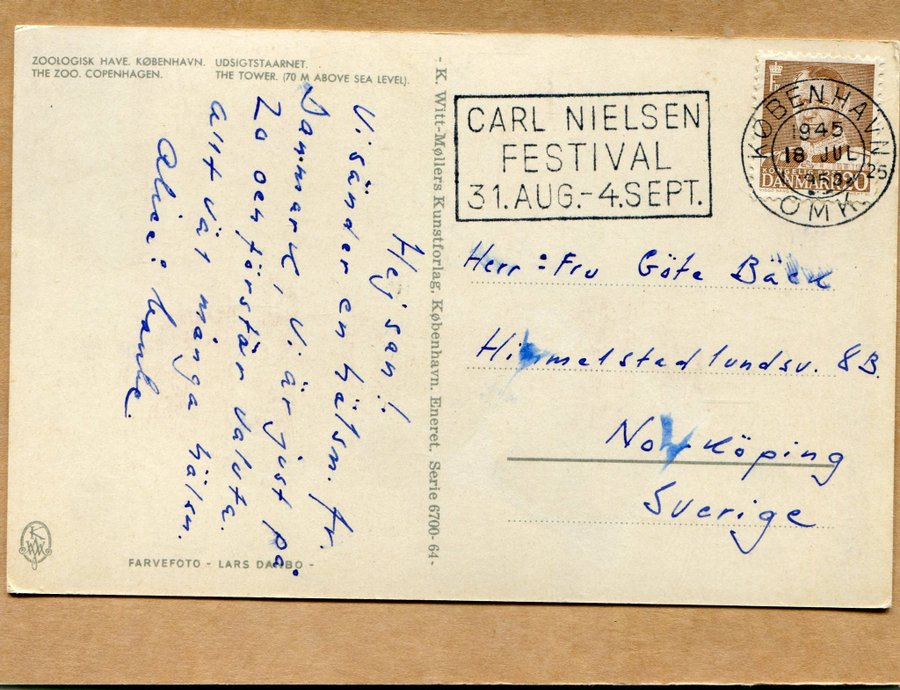 ZOOLOGISK HAVE. KØBENHAVN. UDSIGTSTAARNET.
THE ZOO. COPENHAGEN. THE TOWER. (70 M ABOVE SEA LEVEL).
Hej san!
Vi sänder en hälsn. fr.
Danmark, Vi är just på
Zo och förstär valuta.
allt vät många hälsn.
- K. Witt-Møllers Kunstforlag, København. Eneret. Serie 6700-64-
CARL NIELSEN
FESTIVAL
31.AUG.-4.SEPT.
KØBENHAVN
1945
18 JUL
OMK.
25
DANMARK
Herr : Fru Göte Bäck
Himmelstadlundsv. 8B.
Norrköping
Sverige
KWM
FARVEFOTO - LARS DANBO -